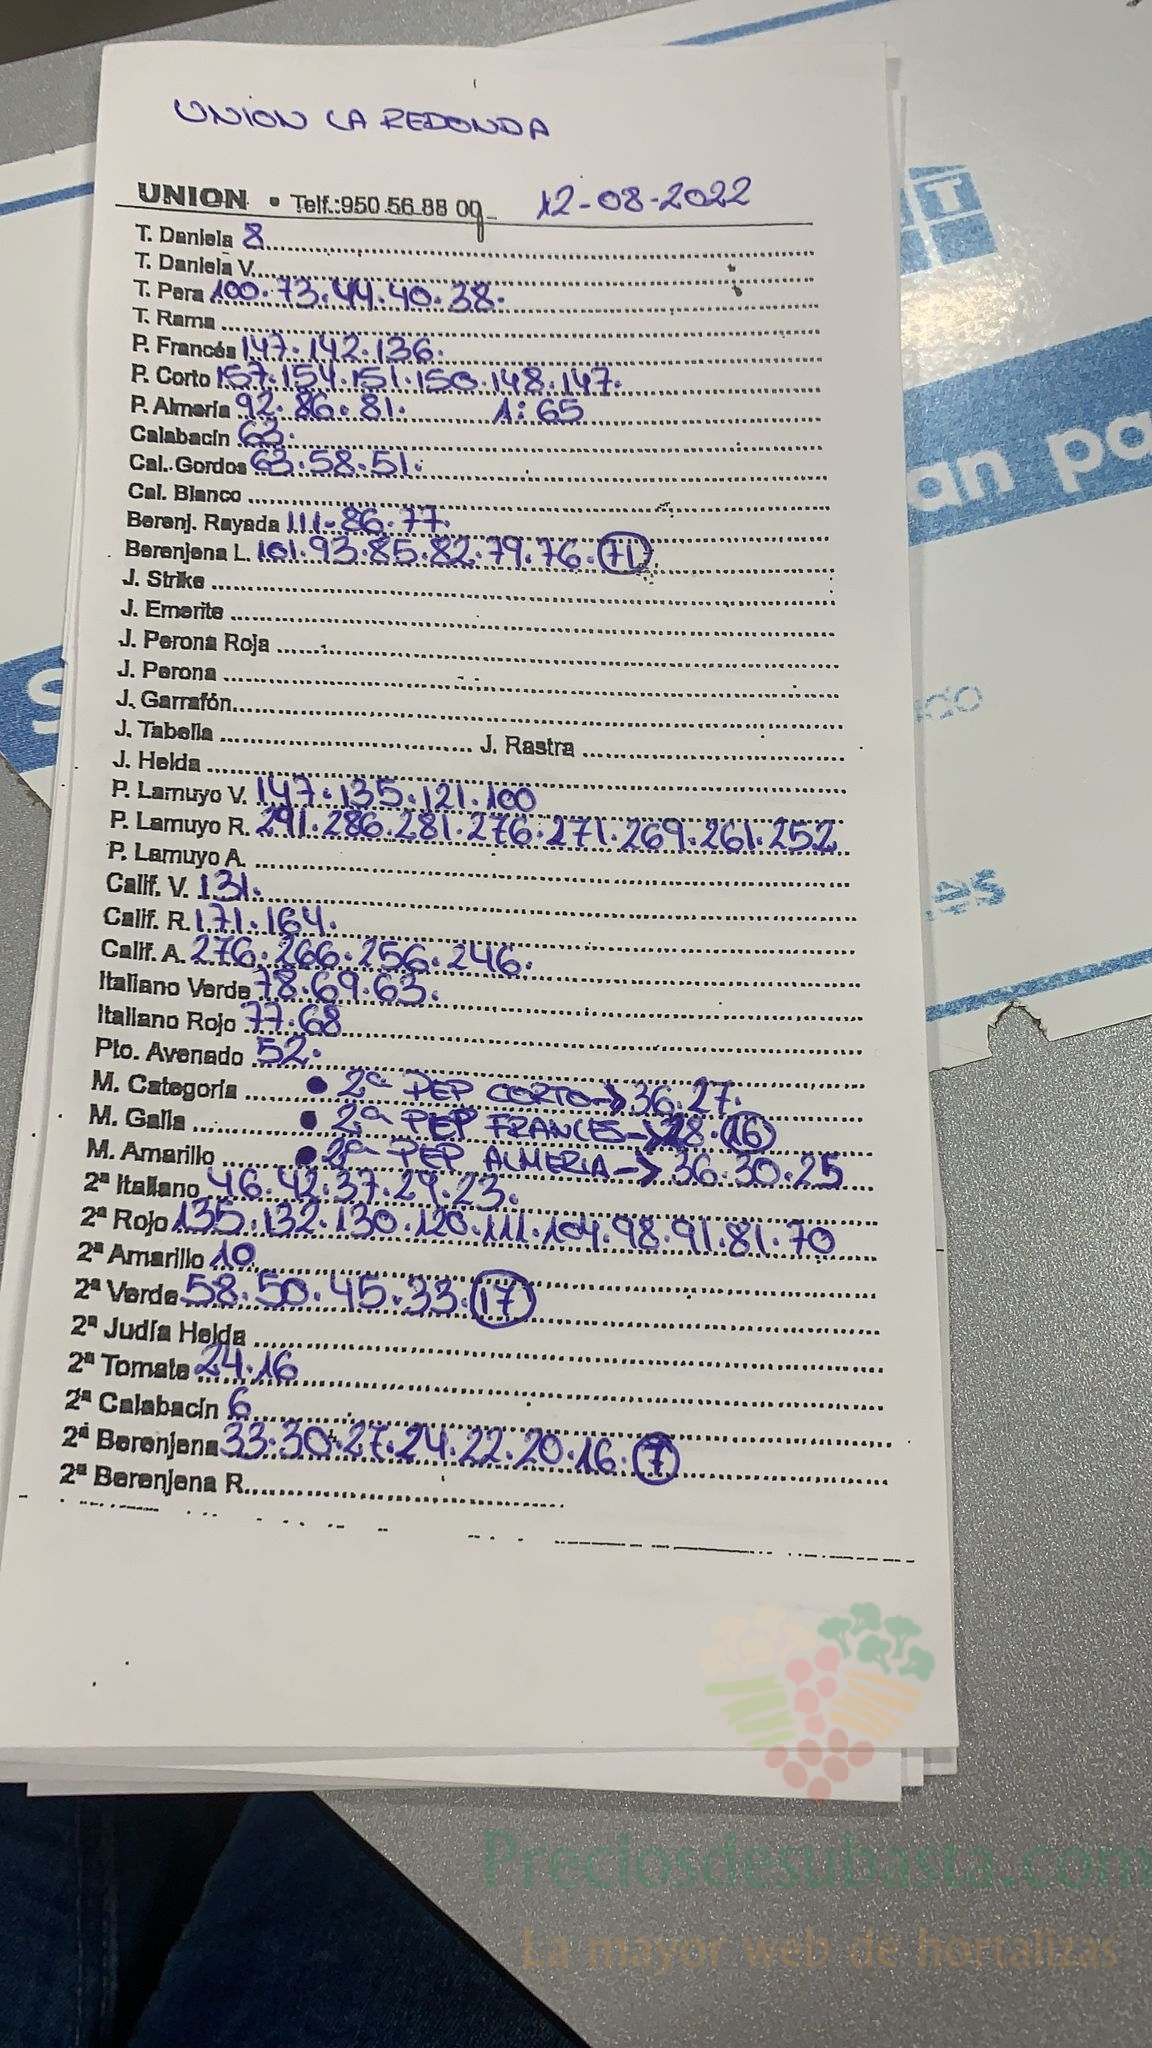 UNION LA REDONDA
UNION • Telf.:950 56 88 09 12-08-2022
T. Daniela 8
T. Daniela V.
T. Pera 100. 73. 44. 40. 38.
T. Rama
P. Francés 147. 142. 136.
P. Corto 157. 154. 151. 150. 148. 147.
P. Almería 92. 86. 81. A: 65
Calabacín 63.
Cal. Gordos 63. 58. 51.
Cal. Blanco
Berenj. Rayada 111. 86. 77.
Berenjena L. 101. 93. 85. 82. 79. 76. 71
J. Strike
J. Emerite
J. Perona Roja
J. Perona
J. Garrafón
J. Tabella J. Rastra
J. Helda
P. Lamuyo V. 147. 135. 121. 100
P. Lamuyo R. 291. 286. 281. 276. 271. 269. 261. 252
P. Lamuyo A.
Calif. V. 131.
Calif. R. 171. 164.
Calif. A. 276. 266. 256. 246.
Italiano Verde 78. 69. 63.
Italiano Rojo 77. 68
Pto. Avenado 52.
M. Categoría • 2ª PEP CORTO → 36. 27.
M. Galia • 2ª PEP FRANCES → 28. 16
M. Amarillo • 2ª PEP ALMERIA → 36. 30. 25
2ª Italiano 46. 42. 37. 29. 23.
2ª Rojo 135. 132. 130. 120. 111. 104. 98. 91. 81. 70
2ª Amarillo 10
2ª Verde 58. 50. 45. 33. 17
2ª Judía Helda
2ª Tomate 24. 16
2ª Calabacín 6
2ª Berenjena 33. 30. 27. 24. 22. 20. 16. 7
2ª Berenjena R.
an pa
Preciosdesubasta.com
La mayor web de hortalizas